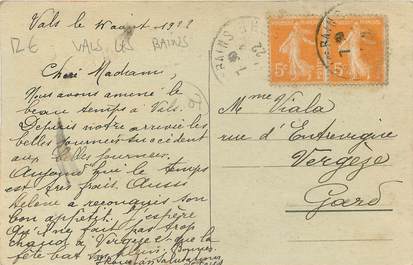 Vals le 10 août 1922
12€ VALS LES BAINS
Chère Madame,
Nous avons amené le
beau temps à Vals.
Depuis notre arrivée les
belles journées succèdent
aux belles journées.
Aujourd'hui le temps
est très frais. Aussi
Hélène a reconquis son
bon appétit. J'espère
qu'il ne fait pas trop
chaud à Vergèze et que la
fête bat son plein. Bonnes
salutations
BAINS
5c
5c
Mme Viala
rue d'Entrevigne
Vergèze
Gard